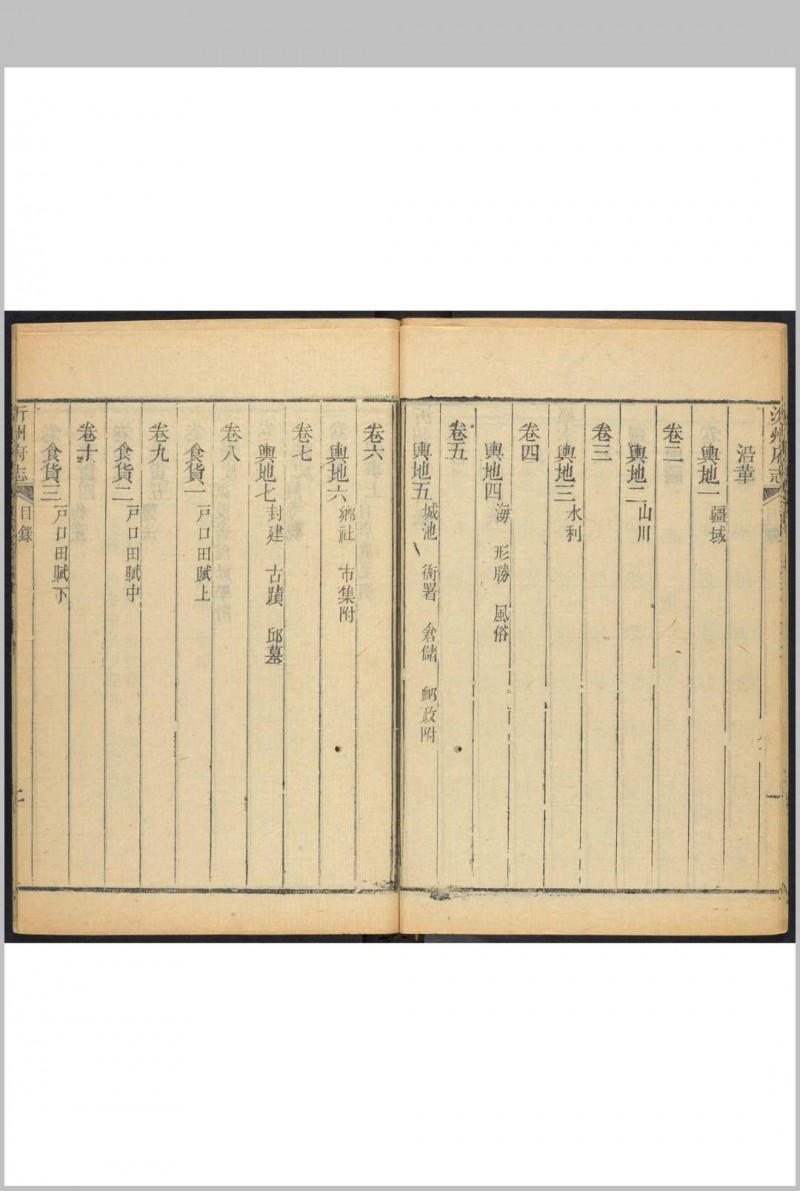 沂州府志 一
沿革
輿地一 疆域
卷二
輿地二 山川
卷三
輿地三 水利
卷四
輿地四 海 形勝 風俗
卷五
輿地五 城池 衙署 倉儲 郵政附
卷六
輿地六 鄉社 市集附
卷七
輿地七 封建 古蹟 邱墓
卷八
食貨一 戸口田賦上
卷九
食貨二 戸口田賦中
卷十
食貨三 戸口田賦下
沂州府志 目錄 二